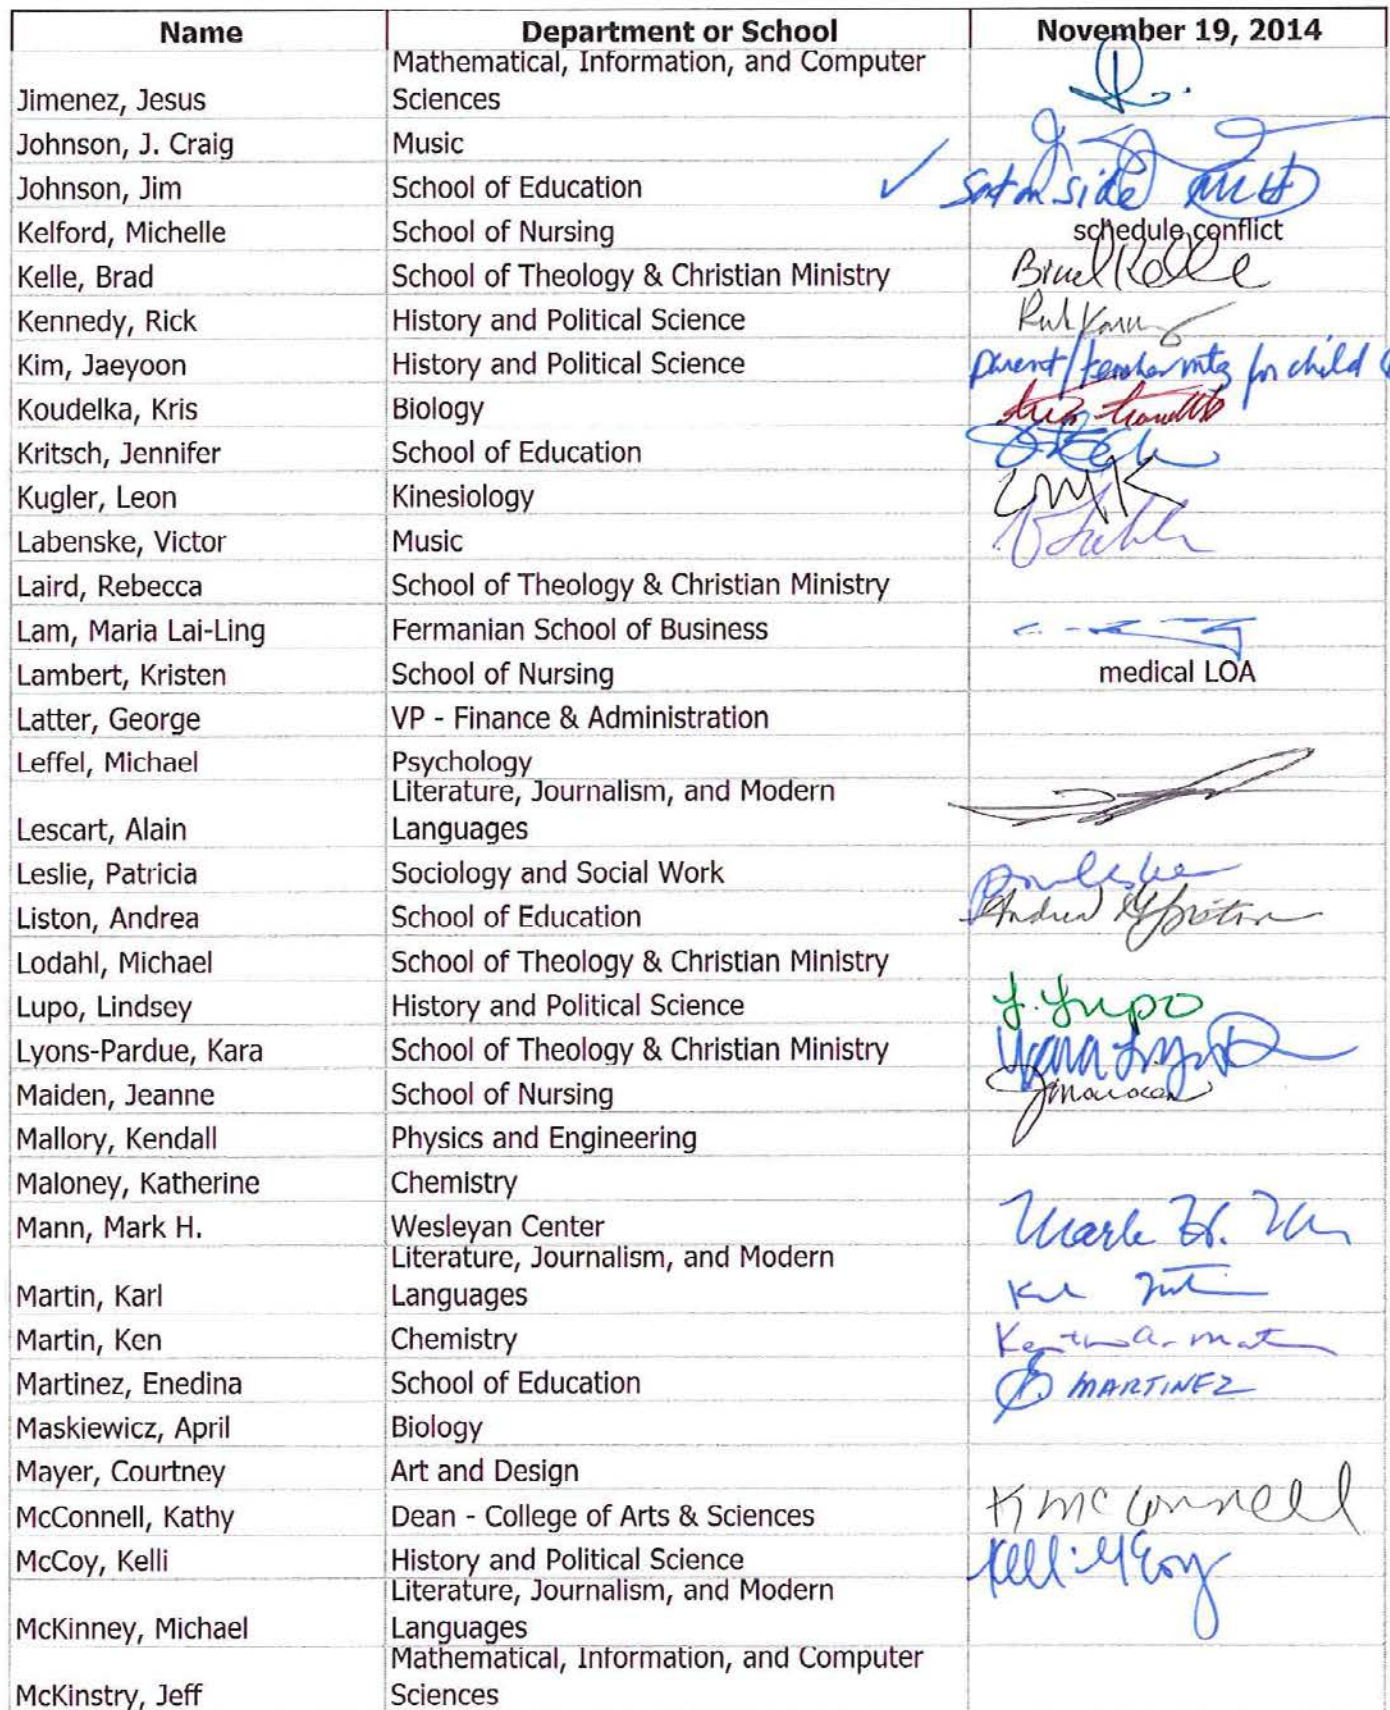 Name Department or School November 19, 2014
Mathematical, Information, and Computer
Jimenez, Jesus Sciences
Johnson, J. Craig Music
Johnson, Jim School of Education ✓ Sat on side
Kelford, Michelle School of Nursing schedule conflict
Kelle, Brad School of Theology & Christian Ministry Brad Kelle
Kennedy, Rick History and Political Science
Kim, Jaeyoon History and Political Science parent/teacher mtg for child
Koudelka, Kris Biology
Kritsch, Jennifer School of Education
Kugler, Leon Kinesiology LMK
Labenske, Victor Music
Laird, Rebecca School of Theology & Christian Ministry
Lam, Maria Lai-Ling Fermanian School of Business
Lambert, Kristen School of Nursing medical LOA
Latter, George VP - Finance & Administration
Leffel, Michael Psychology
Literature, Journalism, and Modern
Lescart, Alain Languages
Leslie, Patricia Sociology and Social Work
Liston, Andrea School of Education Andrea Liston
Lodahl, Michael School of Theology & Christian Ministry
Lupo, Lindsey History and Political Science L. Lupo
Lyons-Pardue, Kara School of Theology & Christian Ministry Kara
Maiden, Jeanne School of Nursing
Mallory, Kendall Physics and Engineering
Maloney, Katherine Chemistry
Mann, Mark H. Wesleyan Center Mark H.
Literature, Journalism, and Modern
Martin, Karl Languages
Martin, Ken Chemistry
Martinez, Enedina School of Education E. MARTINEZ
Maskiewicz, April Biology
Mayer, Courtney Art and Design
McConnell, Kathy Dean - College of Arts & Sciences K McConnell
McCoy, Kelli History and Political Science Kelli McCoy
Literature, Journalism, and Modern
McKinney, Michael Languages
Mathematical, Information, and Computer
McKinstry, Jeff Sciences